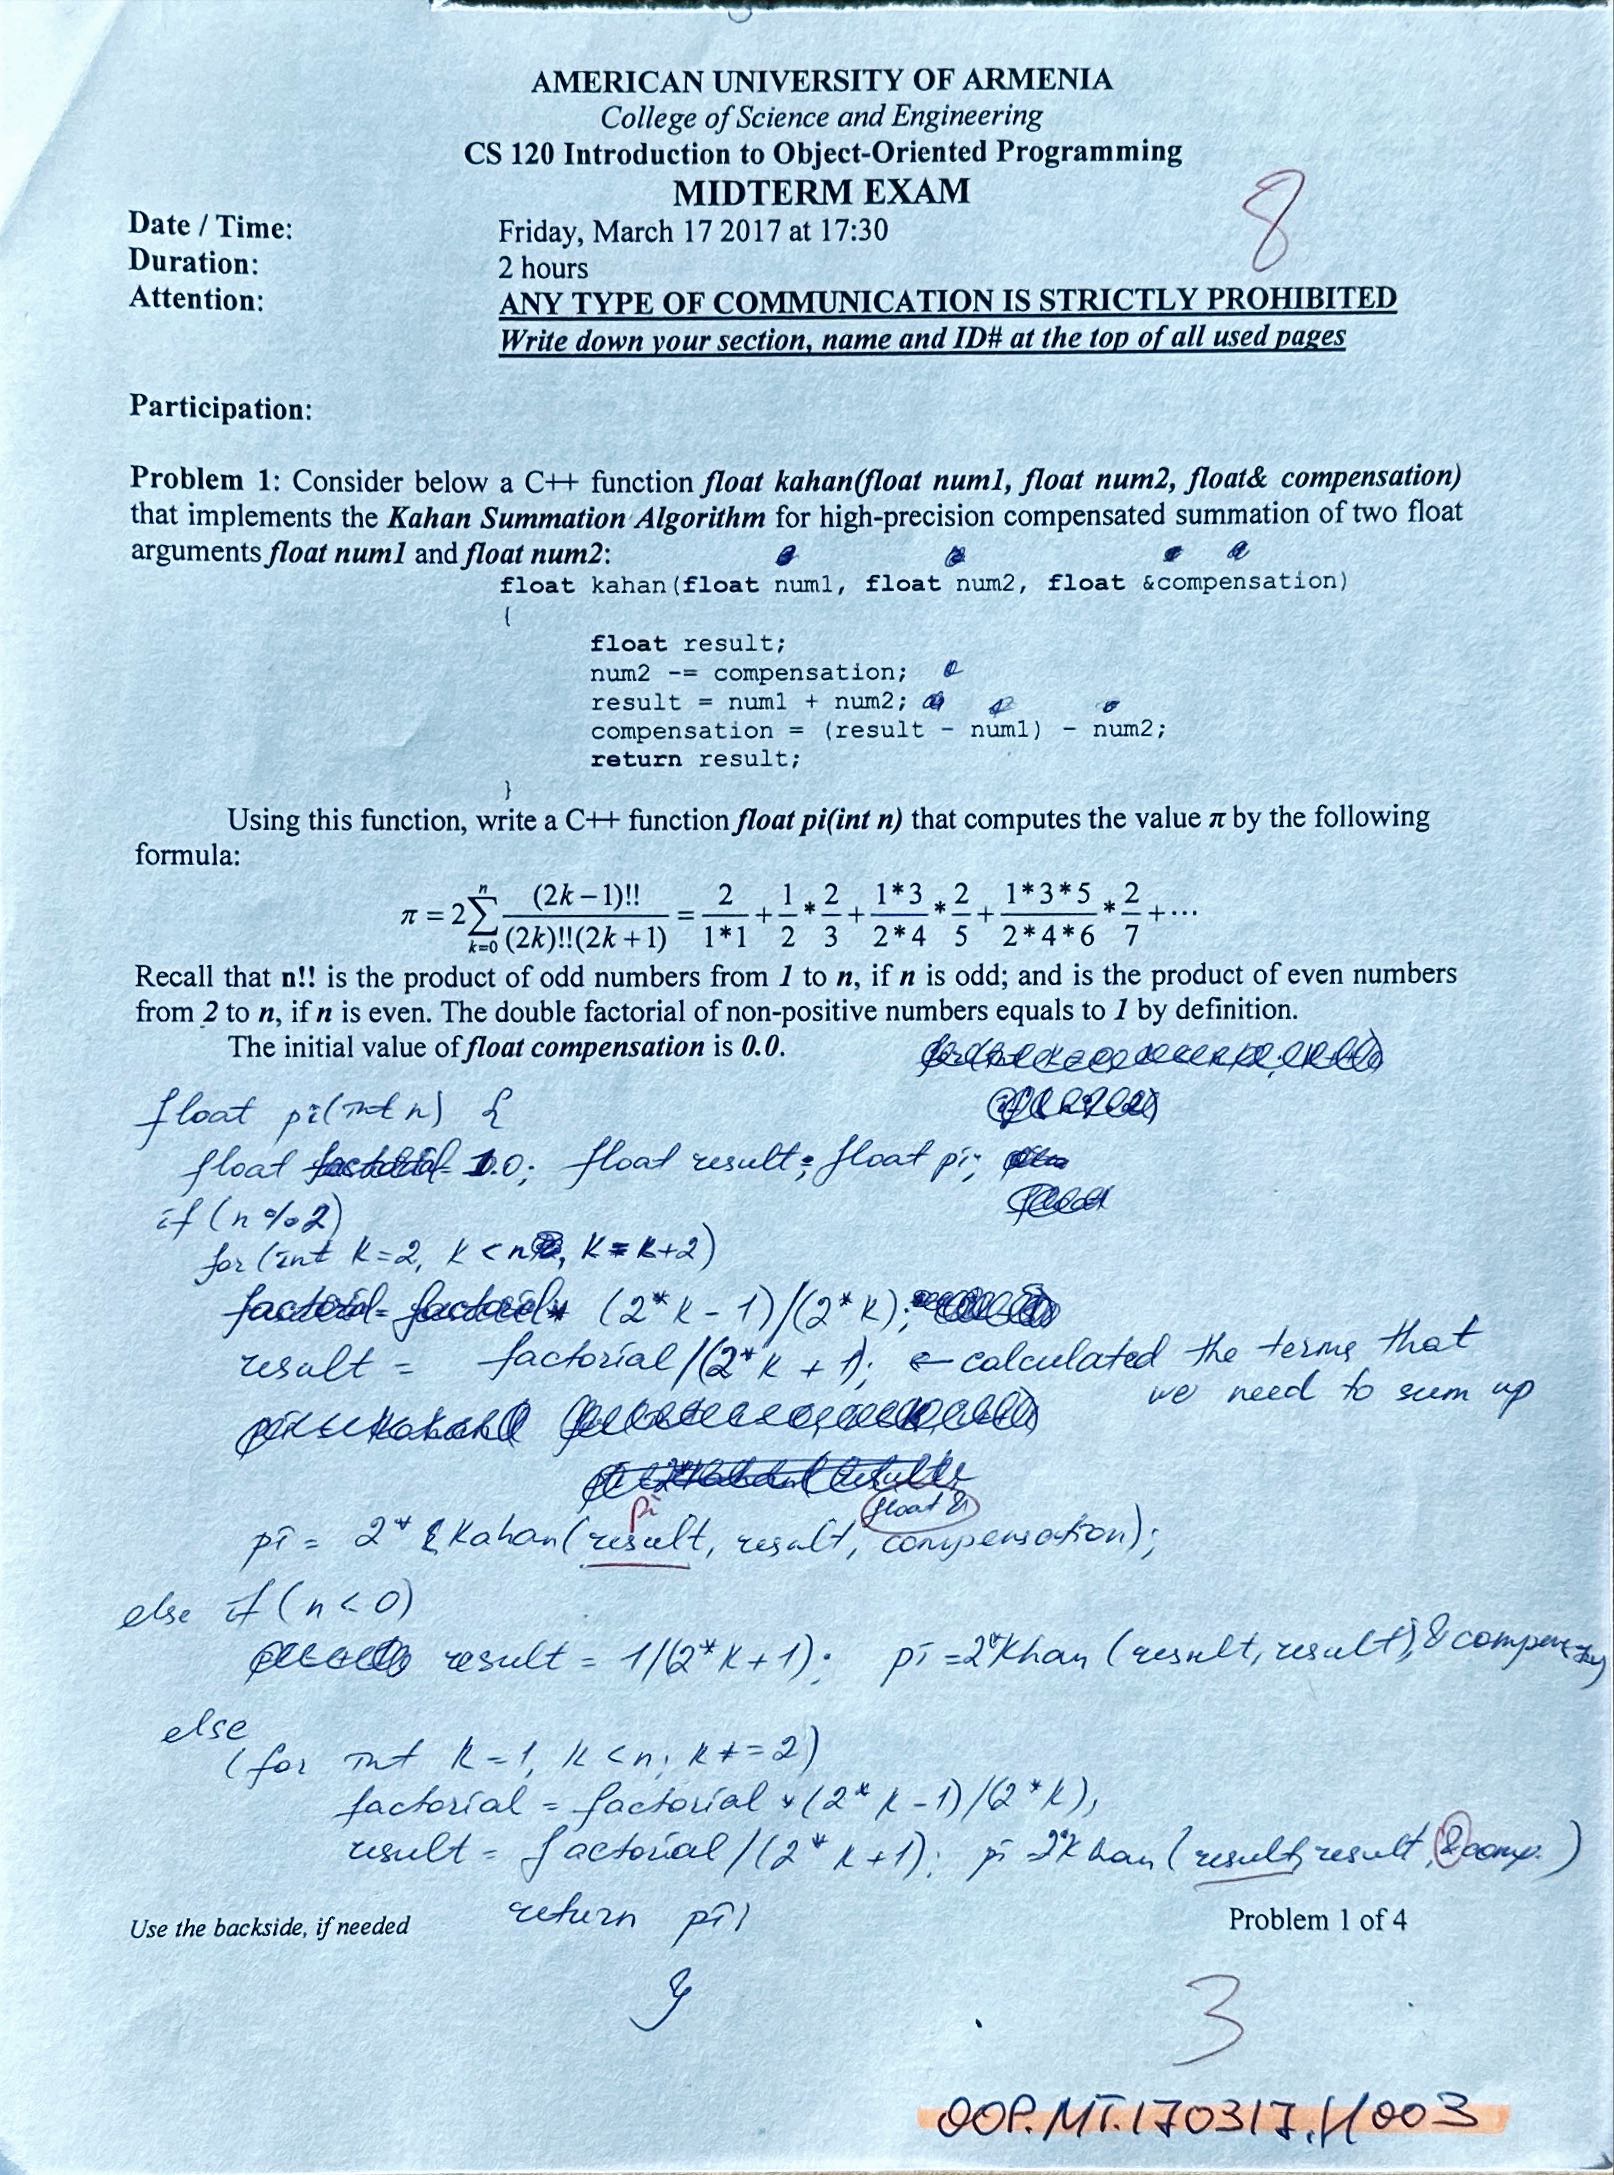 AMERICAN UNIVERSITY OF ARMENIA
College of Science and Engineering
CS 120 Introduction to Object-Oriented Programming
MIDTERM EXAM
8
Date / Time: Friday, March 17 2017 at 17:30
Duration: 2 hours
Attention: ANY TYPE OF COMMUNICATION IS STRICTLY PROHIBITED
Write down your section, name and ID# at the top of all used pages
Participation:
Problem 1: Consider below a C++ function float kahan(float num1, float num2, float& compensation)
that implements the Kahan Summation Algorithm for high-precision compensated summation of two float
arguments float num1 and float num2:
float kahan(float num1, float num2, float &compensation)
{
float result;
num2 -= compensation;
result = num1 + num2;
compensation = (result - num1) - num2;
return result;
}
Using this function, write a C++ function float pi(int n) that computes the value π by the following
formula:
π = 2 ∑_{k=0}^{n} (2k-1)!! / ((2k)!!(2k+1)) = 2/(1*1) + 1/2 * 2/3 + (1*3)/(2*4) * 2/5 + (1*3*5)/(2*4*6) * 2/7 + ···
Recall that n!! is the product of odd numbers from 1 to n, if n is odd; and is the product of even numbers
from 2 to n, if n is even. The double factorial of non-positive numbers equals to 1 by definition.
The initial value of float compensation is 0.0.
float pi(int n) {
float factorial = 1.0; float result; float pi;
if (n % 2)
for (int k=2, k<n, k=k+2)
factorial = factorial * (2*k-1)/(2*k);
result = factorial/(2*k+1); ← calculated the terms that
we need to sum up
pi
float &
pi = 2* Kahan(result, result, compensation);
else if (n<0)
result = 1/(2*k+1); pi=2*Khan (result, result); &
else
(for int k=1, k<n; k+=2)
factorial = factorial * (2*k-1)/(2*k),
result = factorial/(2*k+1); pi 2*Khan (result, result, &comp.)
return pi;
}
Use the backside, if needed
Problem 1 of 4
3
OOP.MT.170317.H003